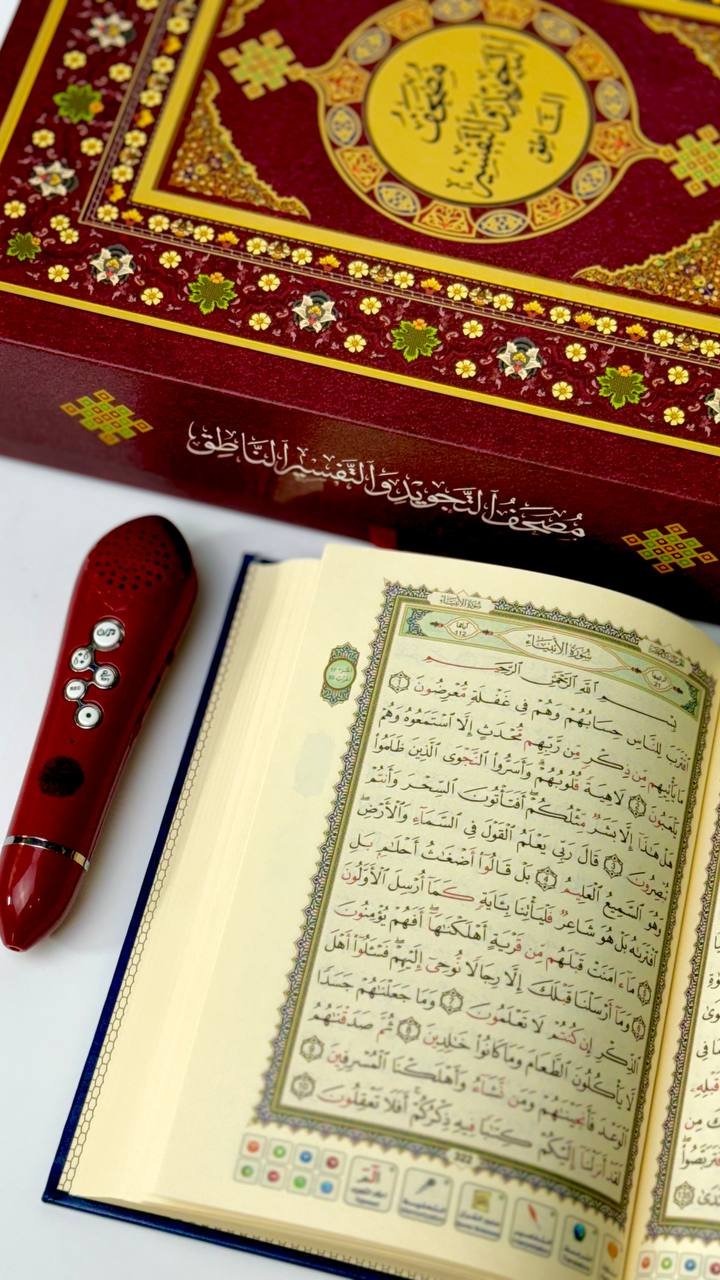 مصحف
التجويد والتفسير
الناطق
مُصْحَفُ التَّجْوِيدِ وَالتَّفْسِيرِ النَّاطِقِ
سُورَةُ الأَنبِيَاءِ
آياتها 112
سُورَةُ الأَنبِيَاءِ
بِسْمِ ٱللَّهِ ٱلرَّحْمَٰنِ ٱلرَّحِيمِ
ٱقْتَرَبَ لِلنَّاسِ حِسَابُهُمْ وَهُمْ فِى غَفْلَةٍ مُّعْرِضُونَ ١
مَا يَأْتِيهِم مِّن ذِكْرٍ مِّن رَّبِّهِم مُّحْدَثٍ إِلَّا ٱسْتَمَعُوهُ وَهُمْ
يَلْعَبُونَ ٢ لَاهِيَةً قُلُوبُهُمْ ۗ وَأَسَرُّوا۟ ٱلنَّجْوَى ٱلَّذِينَ ظَلَمُوا۟
هَلْ هَٰذَآ إِلَّا بَشَرٌ مِّثْلُكُمْ ۖ أَفَتَأْتُونَ ٱلسِّحْرَ وَأَنتُمْ
تُبْصِرُونَ ٣ قَالَ رَبِّى يَعْلَمُ ٱلْقَوْلَ فِى ٱلسَّمَآءِ وَٱلْأَرْضِ ۖ
وَهُوَ ٱلسَّمِيعُ ٱلْعَلِيمُ ٤ بَلْ قَالُوٓا۟ أَضْغَٰثُ أَحْلَٰمٍۭ بَلِ
ٱفْتَرَىٰهُ بَلْ هُوَ شَاعِرٌ فَلْيَأْتِنَا بِـَٔايَةٍ كَمَآ أُرْسِلَ ٱلْأَوَّلُونَ
٥ مَآ ءَامَنَتْ قَبْلَهُم مِّن قَرْيَةٍ أَهْلَكْنَٰهَآ ۖ أَفَهُمْ يُؤْمِنُونَ
٦ وَمَآ أَرْسَلْنَا قَبْلَكَ إِلَّا رِجَالًا نُّوحِىٓ إِلَيْهِمْ ۖ فَسْـَٔلُوٓا۟ أَهْلَ
ٱلذِّكْرِ إِن كُنتُمْ لَا تَعْلَمُونَ ٧ وَمَا جَعَلْنَٰهُمْ جَسَدًا
لَّا يَأْكُلُونَ ٱلطَّعَامَ وَمَا كَانُوا۟ خَٰلِدِينَ ٨ ثُمَّ صَدَقْنَٰهُمُ
ٱلْوَعْدَ فَأَنجَيْنَٰهُمْ وَمَن نَّشَآءُ وَأَهْلَكْنَا ٱلْمُسْرِفِينَ ٩
لَقَدْ أَنزَلْنَآ إِلَيْكُمْ كِتَٰبًا فِيهِ ذِكْرُكُمْ ۖ أَفَلَا تَعْقِلُونَ ١٠
322